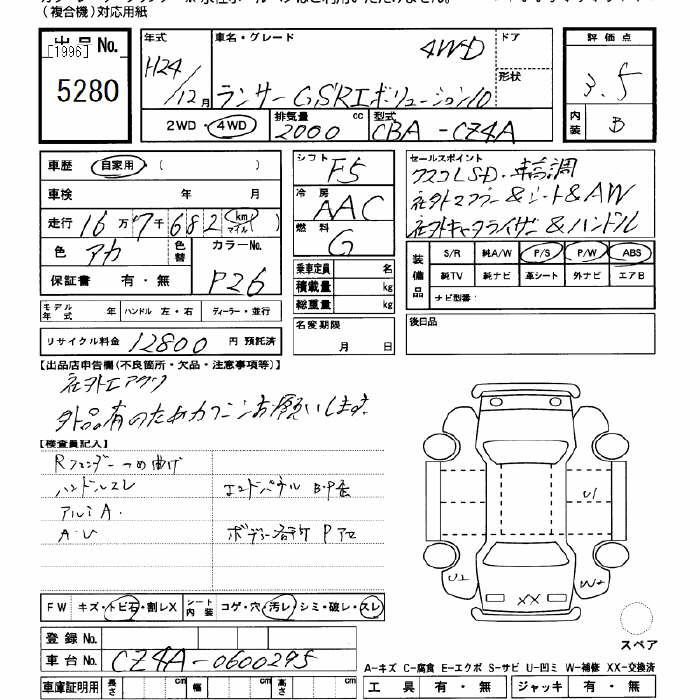 (複合機)対応用紙
出品 No.
[1996]
5280
年式
車名・グレード
ドア
形状
H24/12月
4WD
ランサー GSR エボリューション10
2WD・4WD
排気量
2000 cc
型式
CBA-CZ4A
評価点
3.5
内装
B
車歴 自家用 ( )
車検 年 月
走行 16万7千682 (km マイル)
色 アカ
色替
カラーNo.
P26
保証書 有・無
モデル年式 年
ハンドル 左・右
ディーラー・並行
リサイクル料金 12800 円 預託済
シフト
F5
冷房
AAC
燃料
G
乗車定員 名
積載量 kg
総重量 kg
名変期限
月 日
セールスポイント
クスコLSD・車高調
社外マフラー&シート&AW
社外キャタライザー&ハンドル
装備品
S/R 純A/W P/S P/W ABS
純TV 純ナビ 革シート 外ナビ エアB
ナビ型番:
後日品
【出品店申告欄(不良箇所・欠品・注意事項等)】
社外エアクリ
外品有のためカプコンお願いします。
【検査員記入】
Rフェンダーつめ曲げ
ハンドルスレ
エンドパネル
アルミA.
A・U
ボディー
FW キズ・トビ石・割レX
シート内装 コゲ・穴・汚レ・シミ・破レ・スレ
登録No.
車台No. CZ4A-0600295
車庫証明用 長さ cm 幅 cm 高さ cm
U1
U2
W2
XX
スペア
A-キズ C-腐食 E-エクボ S-サビ U-凹ミ W-補修 XX-交換済
工具 有・無 ジャッキ 有・無